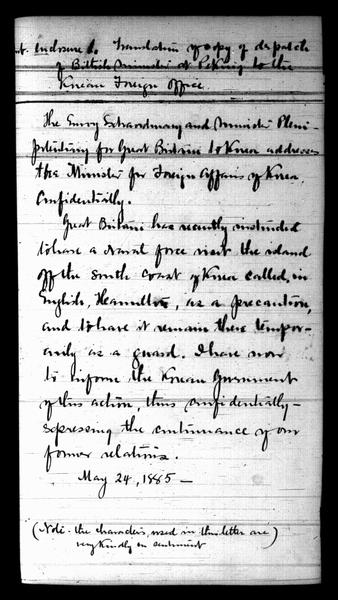 Enclosure 1. Translation of copy of despatch
of British Minister at Peking to the
Korean Foreign Office.
The Envoy Extraordinary and Minister Pleni-
potentiary for Great Britain to Korea addresses
the Minister for Foreign Affairs of Korea,
Confidentially.
Great Britain has recently instructed
to have a naval force visit the island
off the South Coast of Korea called, in
English, Hamilton, as a precaution,
and to have it remain there tempor-
arily as a guard. I have now
to inform the Korean Government
of this action, thus confidentially-
expressing the continuance of our
former relations.
May 24, 1885 —
(Note - the characters used in this letter are
very kindly in sentiment)